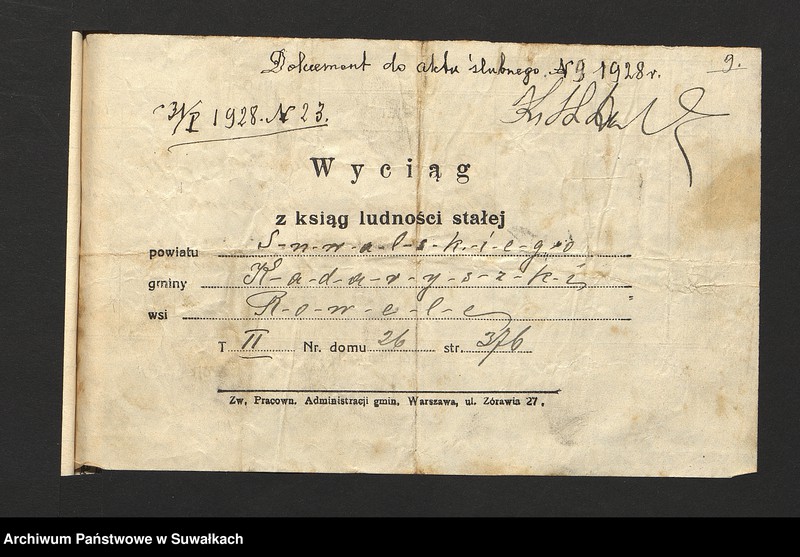 Dokument do aktu ślubnego. № 9 1928 r.
9.
31/I 1928. № 23.
Wyciąg
z ksiąg ludności stałej
powiatu S-u-w-a-l-s-k-i-e-g-o
gminy K-a-d-a-r-y-s-z-k-i
wsi R-o-w-e-l-e
T II Nr. domu 26 str. 376
Zw. Pracown. Administracji gmin. Warszawa, ul. Żórawia 27.
Archiwum Państwowe w Suwałkach